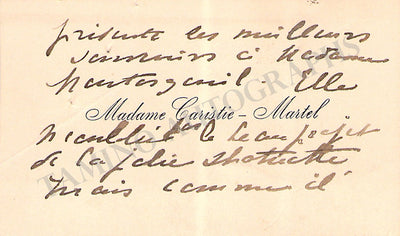 présente les meilleurs
souvenirs à Madame
Elle
Madame Caristie - Martel
n'oublie pas le beau projet
de la jolie statuette
mais comme il
TAMINO AUTOGRAPHS